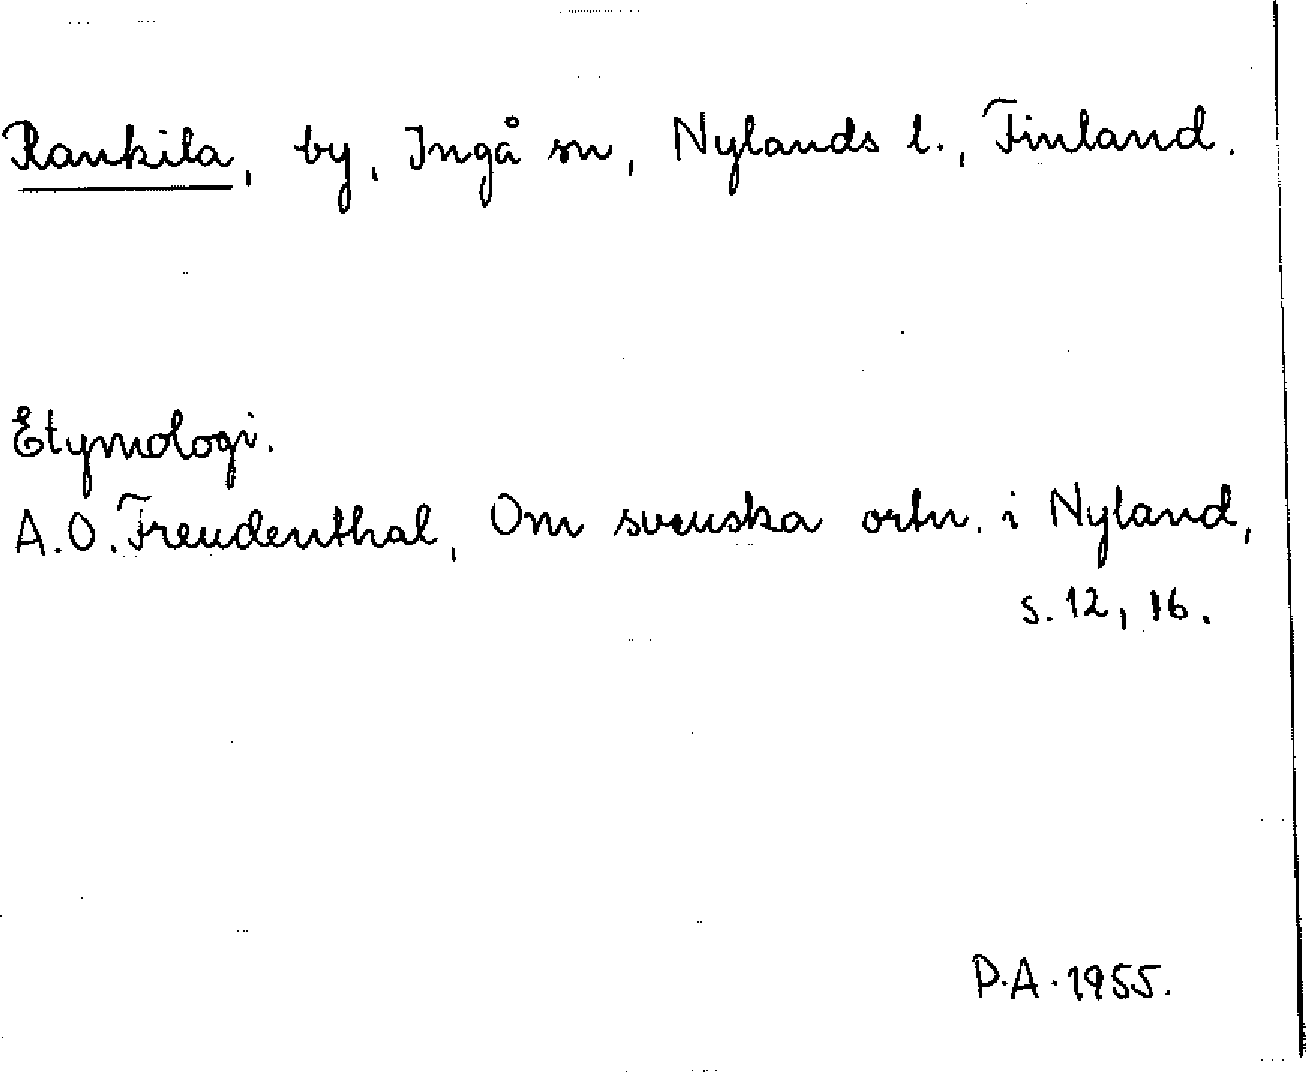 Rankila, by, Ingå sn, Nylands l., Finland.
Etymologi.
A.O. Freudenthal, Om svenska ortn. i Nyland,
s. 12, 16.
P.A. 1955.